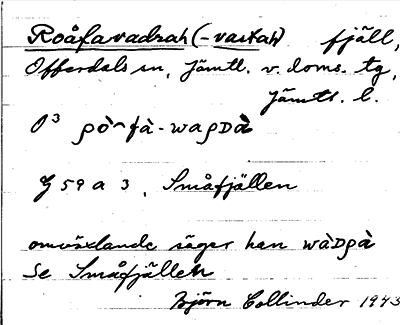 Roåfavadrah (-vartah) fjäll,
Offerdals sn, Jämtl. v. doms. tg,
Jämtl. l.
O³ ρò^fà-waρDà
G 59 a 3, Småfjällen
omväxlande säger han wàDρà
Se Småfjällen
Björn Collinder 1943